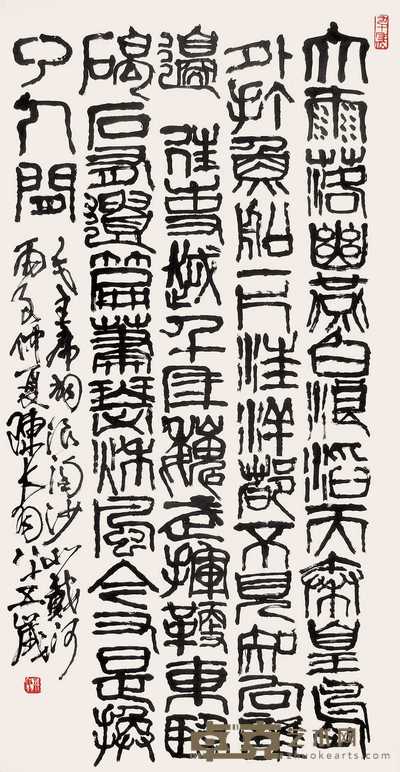 大雨落幽燕白浪滔天秦皇島
外打魚船一片汪洋都不見知向誰
邊往事越千年魏武揮鞭東臨
碣石有遺篇蕭瑟秋風今又是換
了人間
毛主席詞浪淘沙北戴河
丙子仲夏陳大羽八十五歲
卓克艺术网
zhuokearts.com